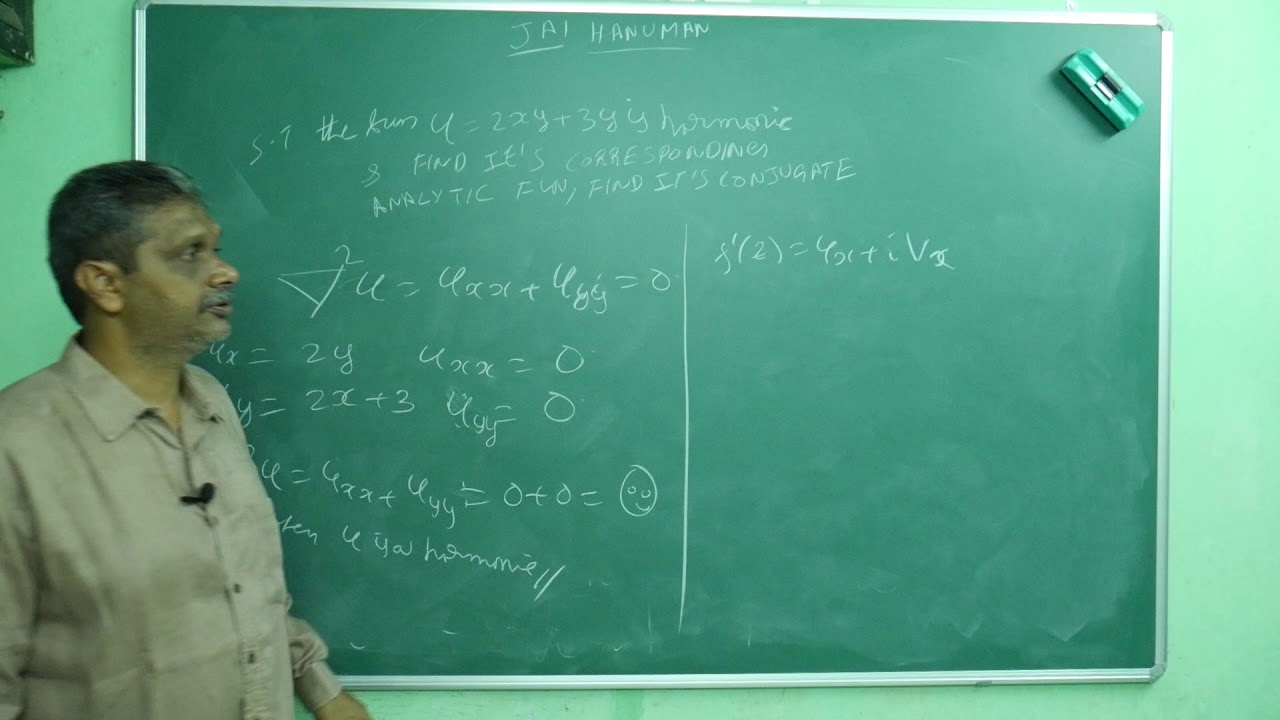 JAI HANUMAN
S.T the fun u = 2xy + 3y is harmonic
& FIND IT'S CORRESPONDING
ANALYTIC FUN, FIND IT'S CONJUGATE
∇²u = uxx + uyy = 0
ux = 2y uxx = 0
y = 2x + 3 uyy = 0
u = uxx + uyy = 0 + 0 =
u is a harmonic //
f'(z) = ux + i Vx